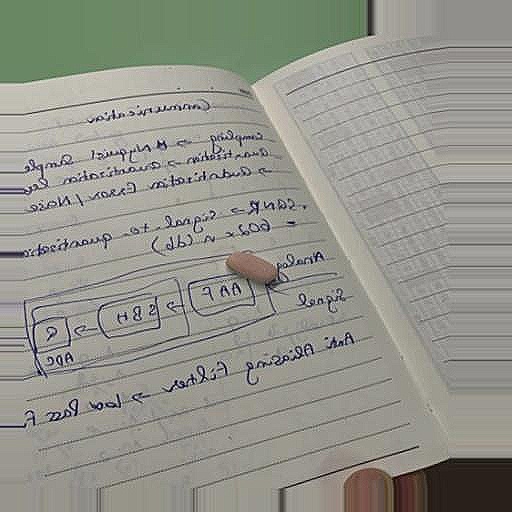 Communication
Sampling → Nyquist Sample
Quantisation → Quantisation
→ Quantisation Error / Noise
SQNR → Signal to quantisation
= 6.02 x n (db)
Analog Signal
AAF → S&H → Q
ADC
Anti Aliasing Filter → Low Pass F